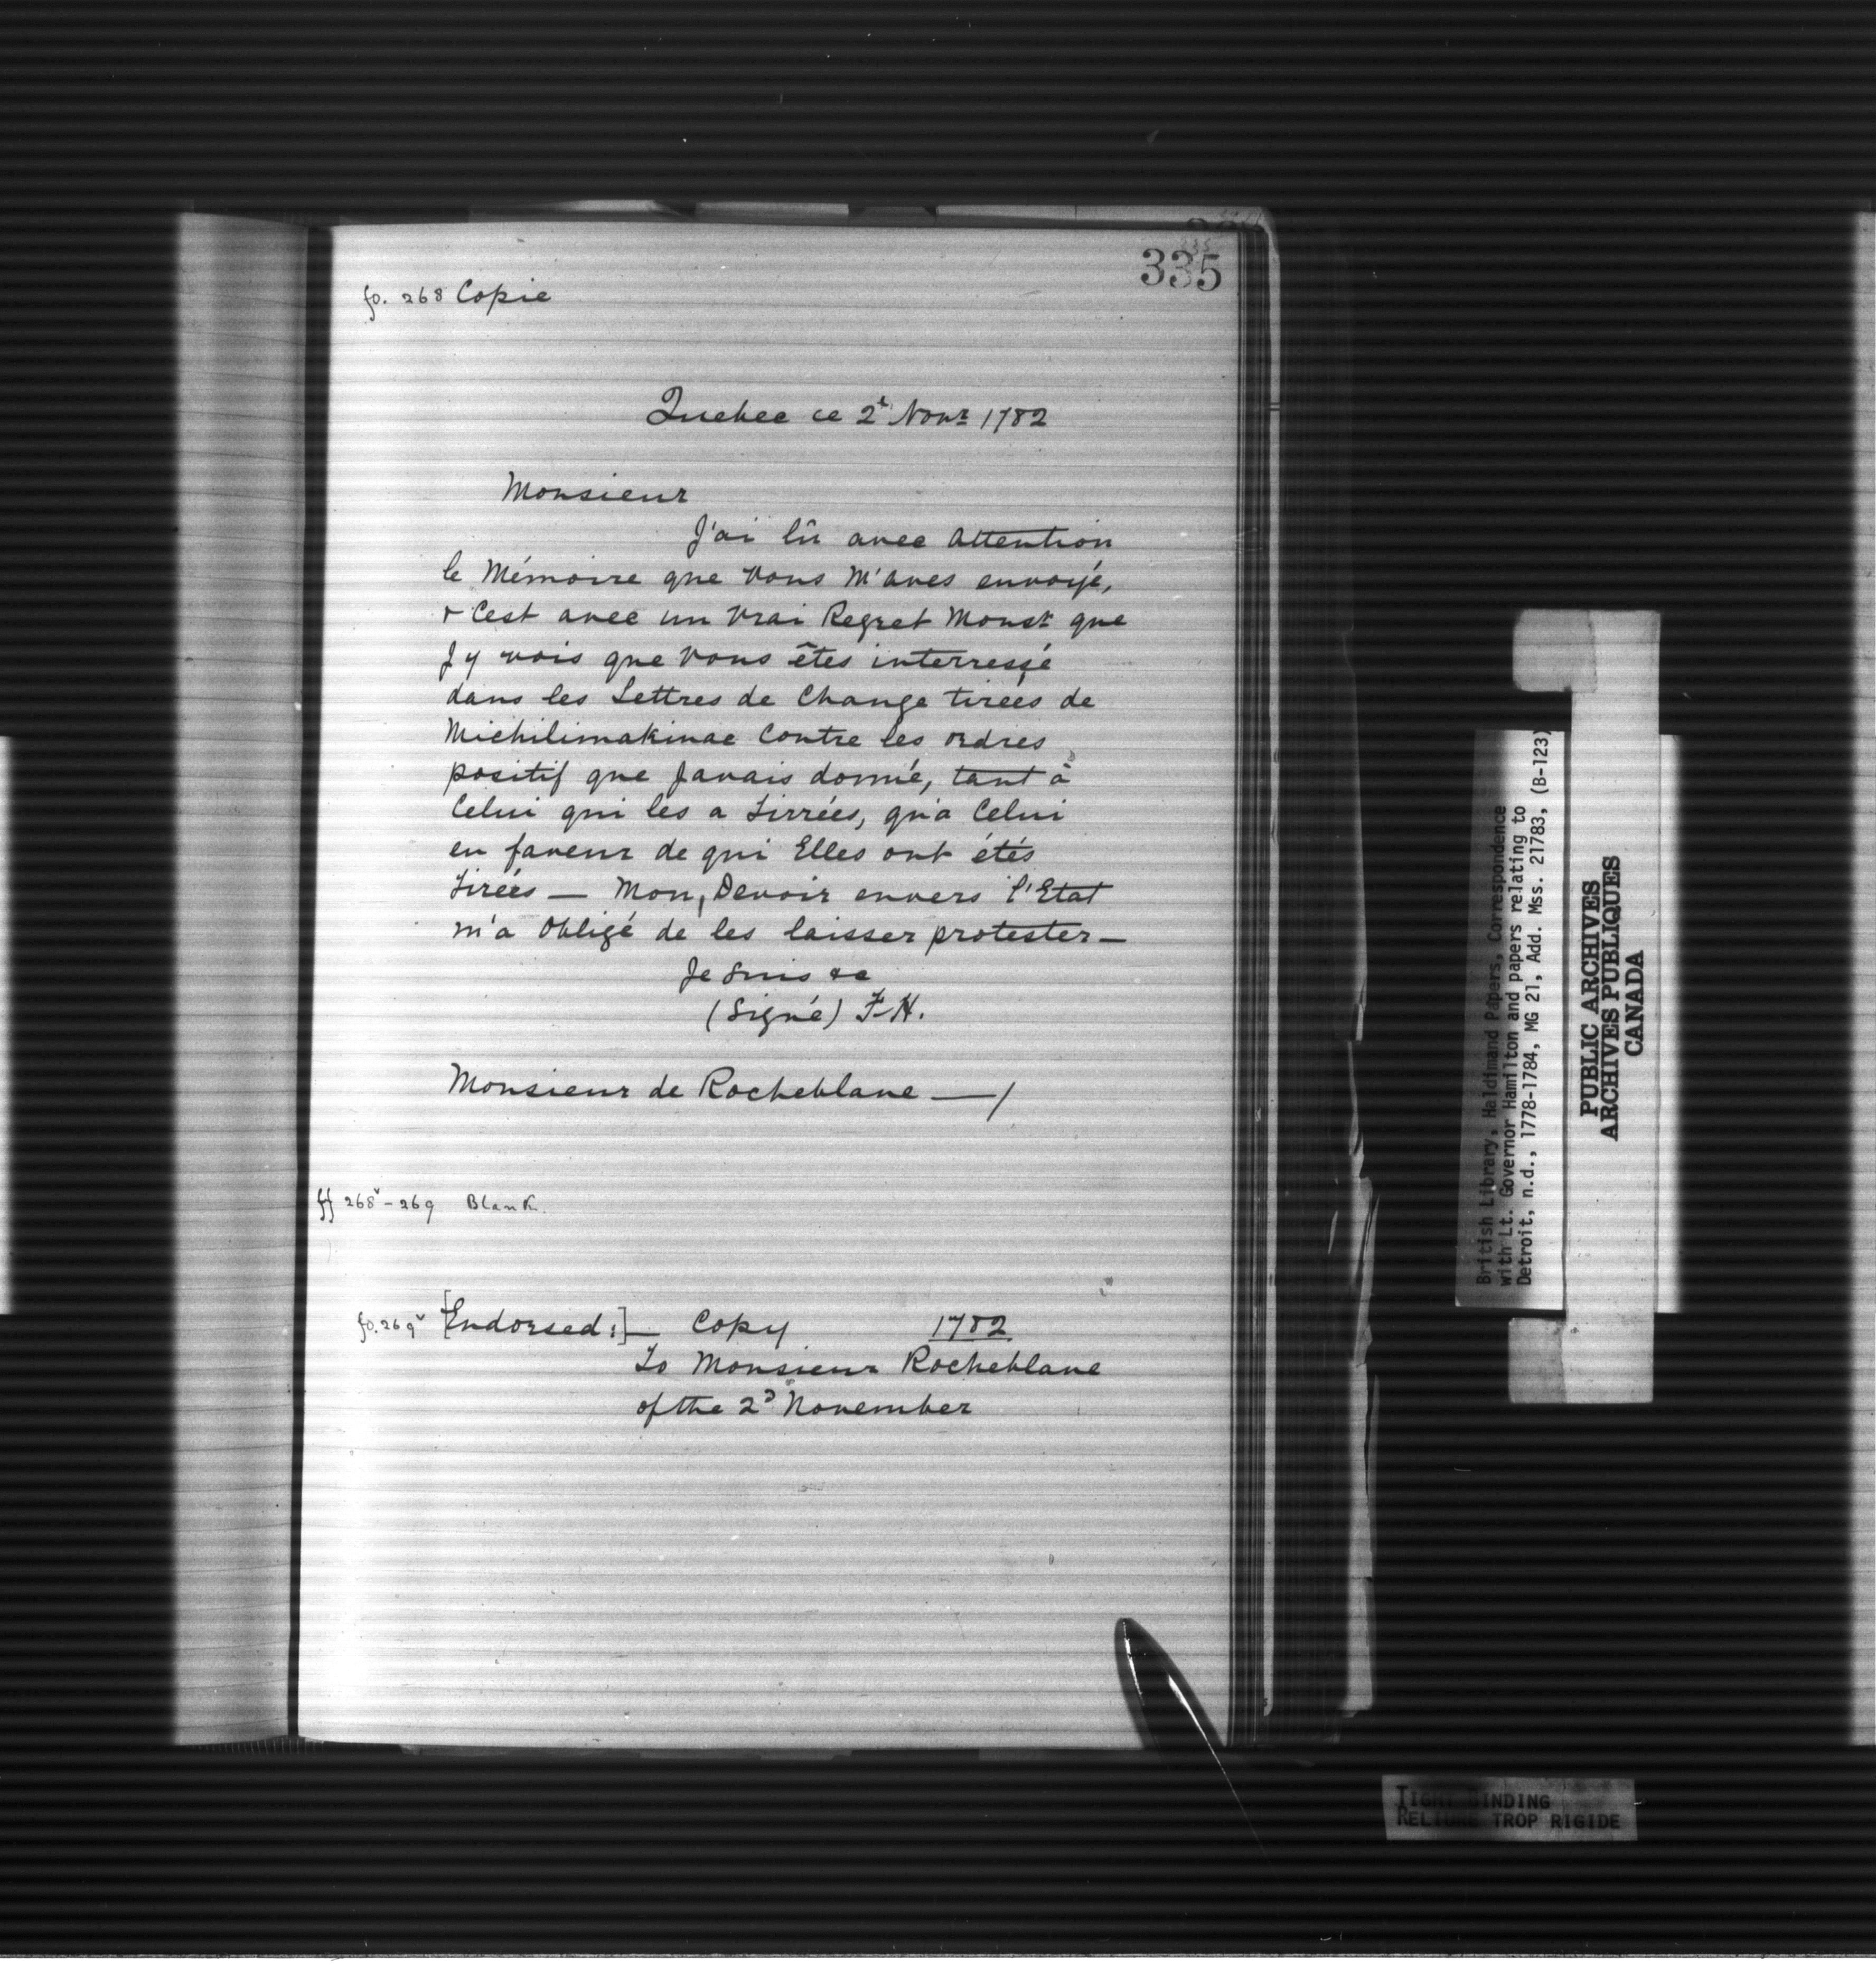 335
fo. 268 Copie
Quebec ce 2e Novr 1782
Monsieur
J'ai lû avec attention
le Mémoire que Vous M'aves envoyé,
& Cest avec un Vrai Regret Monsr que
J y vois que Vous êtes interressé
dans les Lettres de Change tirées de
Michilimakinac Contre les ordres
positif que Javais donné, tant à
Celui qui les a Tirrées, qu'a Celui
en faveur de qui Elles ont étés
Tirées — Mon, Devoir envers l'Etat
m'a Obligé de les laisser protester —
Je Suis &c
(Signé) F H.
Monsieur de Rocheblave — /
ff 268v - 269 Blank.
fo. 269v [Endorsed:] — Copy 1782
To Monsieur Rocheblave
of the 2d November
British Library, Haldimand Papers, Correspondence
with Lt. Governor Hamilton and papers relating to
Detroit, n.d., 1778-1784, MG 21, Add. Mss. 21783, (B-123)
PUBLIC ARCHIVES
ARCHIVES PUBLIQUES
CANADA
TIGHT BINDING
RELIURE TROP RIGIDE